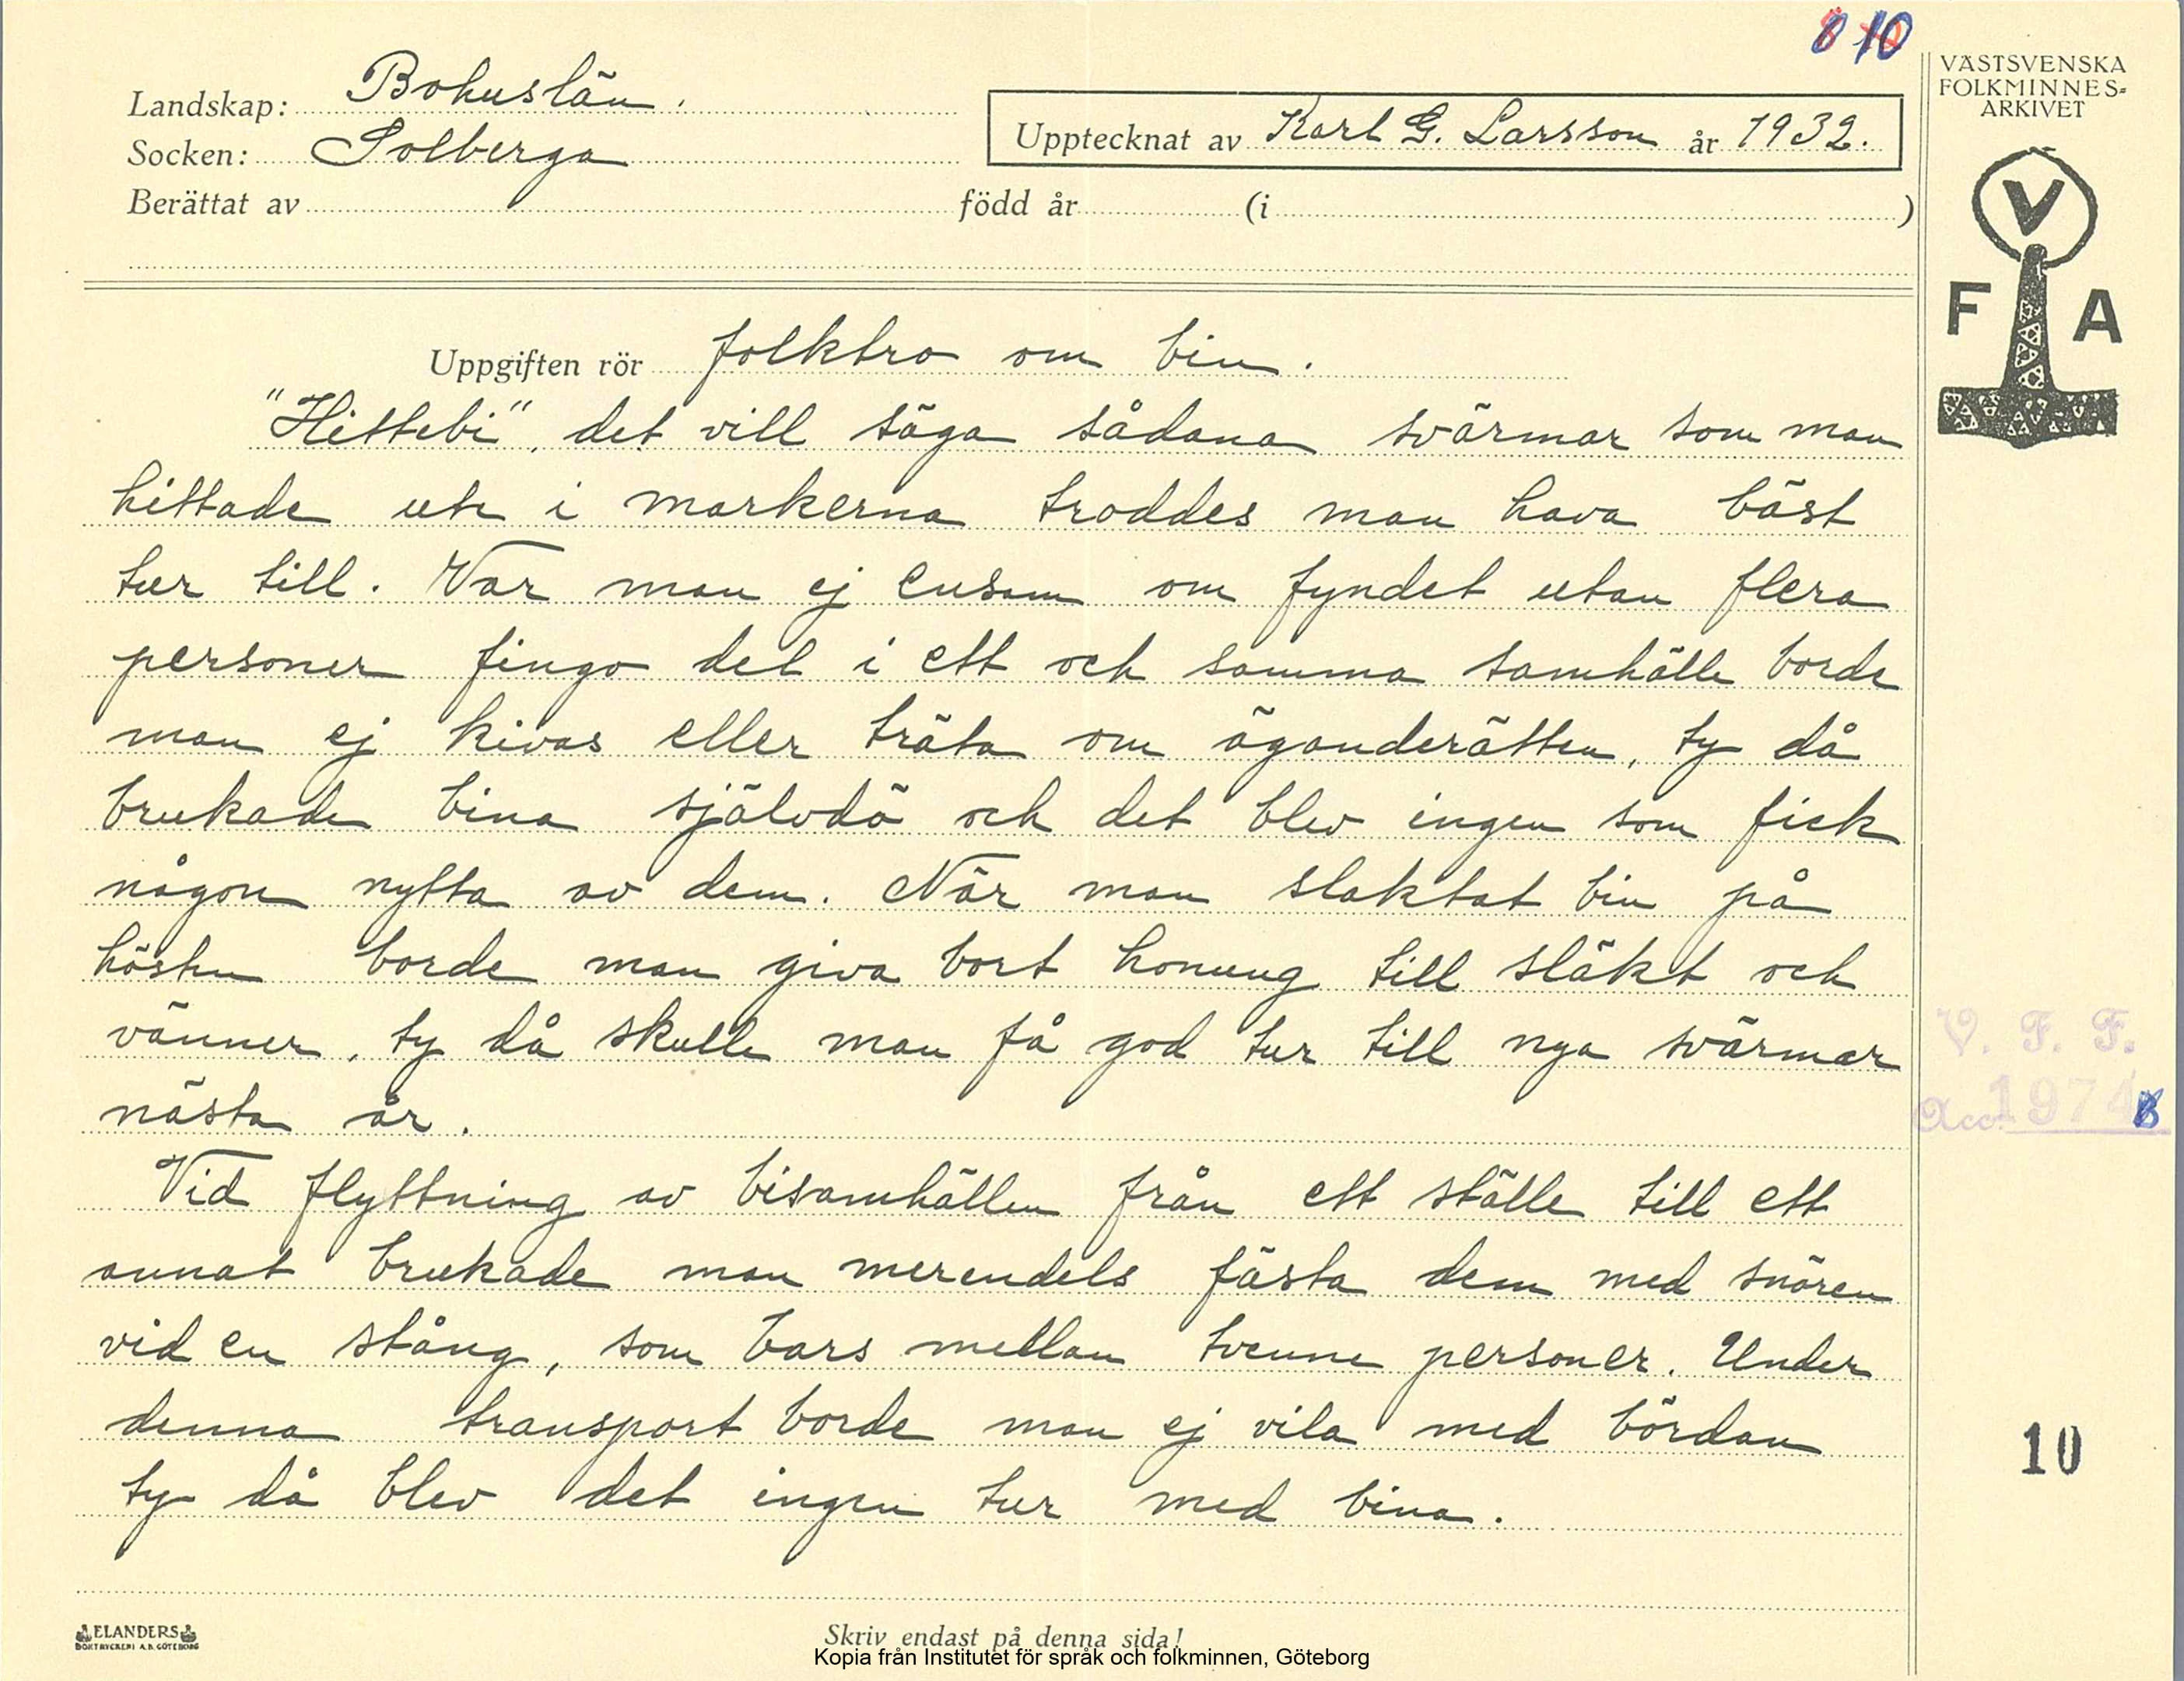 10
VÄSTSVENSKA
FOLKMINNES-
ARKIVET
Landskap: Bohuslän.
Socken: Solberga
Upptecknat av Karl G. Larsson år 1932.
Berättat av född år (i )
V
F A
Uppgiften rör folktro om bin.
"Hittebi", det vill säga sådana svärmar som man
hittade ute i markerna troddes man hava bäst
tur till. Var man ej ensam om fyndet utan flera
personer fingo del i ett och samma samhälle borde
man ej kivas eller träta om äganderätten, ty då
brukade bina självdö och det blev ingen som fick
någon nytta av dem. När man slaktat bin på
hösten borde man giva bort honung till släkt och
vänner, ty då skulle man få god tur till nya svärmar
nästa år.
Vid flyttning av bisamhällen från ett ställe till ett
annat brukade man merendels fästa dem med snören
vid en stång, som bars mellan tvenne personer. Under
denna transport borde man ej vila med bördan
ty då blev det ingen tur med bina.
V. F. F.
Acc. 1974
10
ELANDERS
BOKTRYCKERI A.B. GÖTEBORG
Skriv endast på denna sida!
Kopia från Institutet för språk och folkminnen, Göteborg